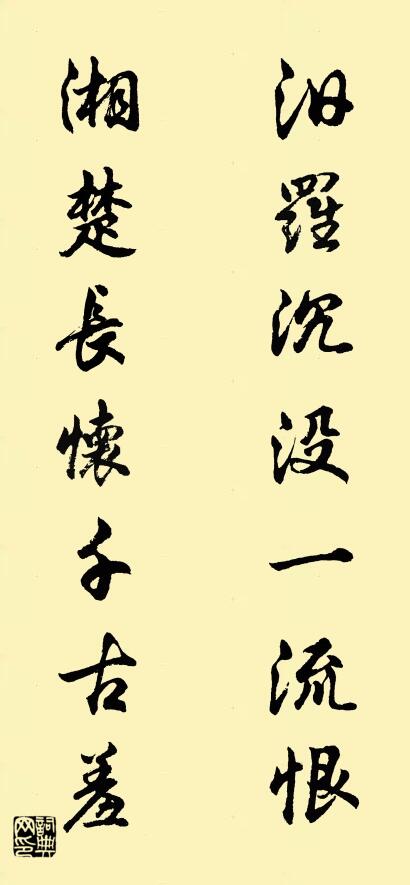 汨羅沉没一流恨
湘楚長懷千古羞
詞典网印